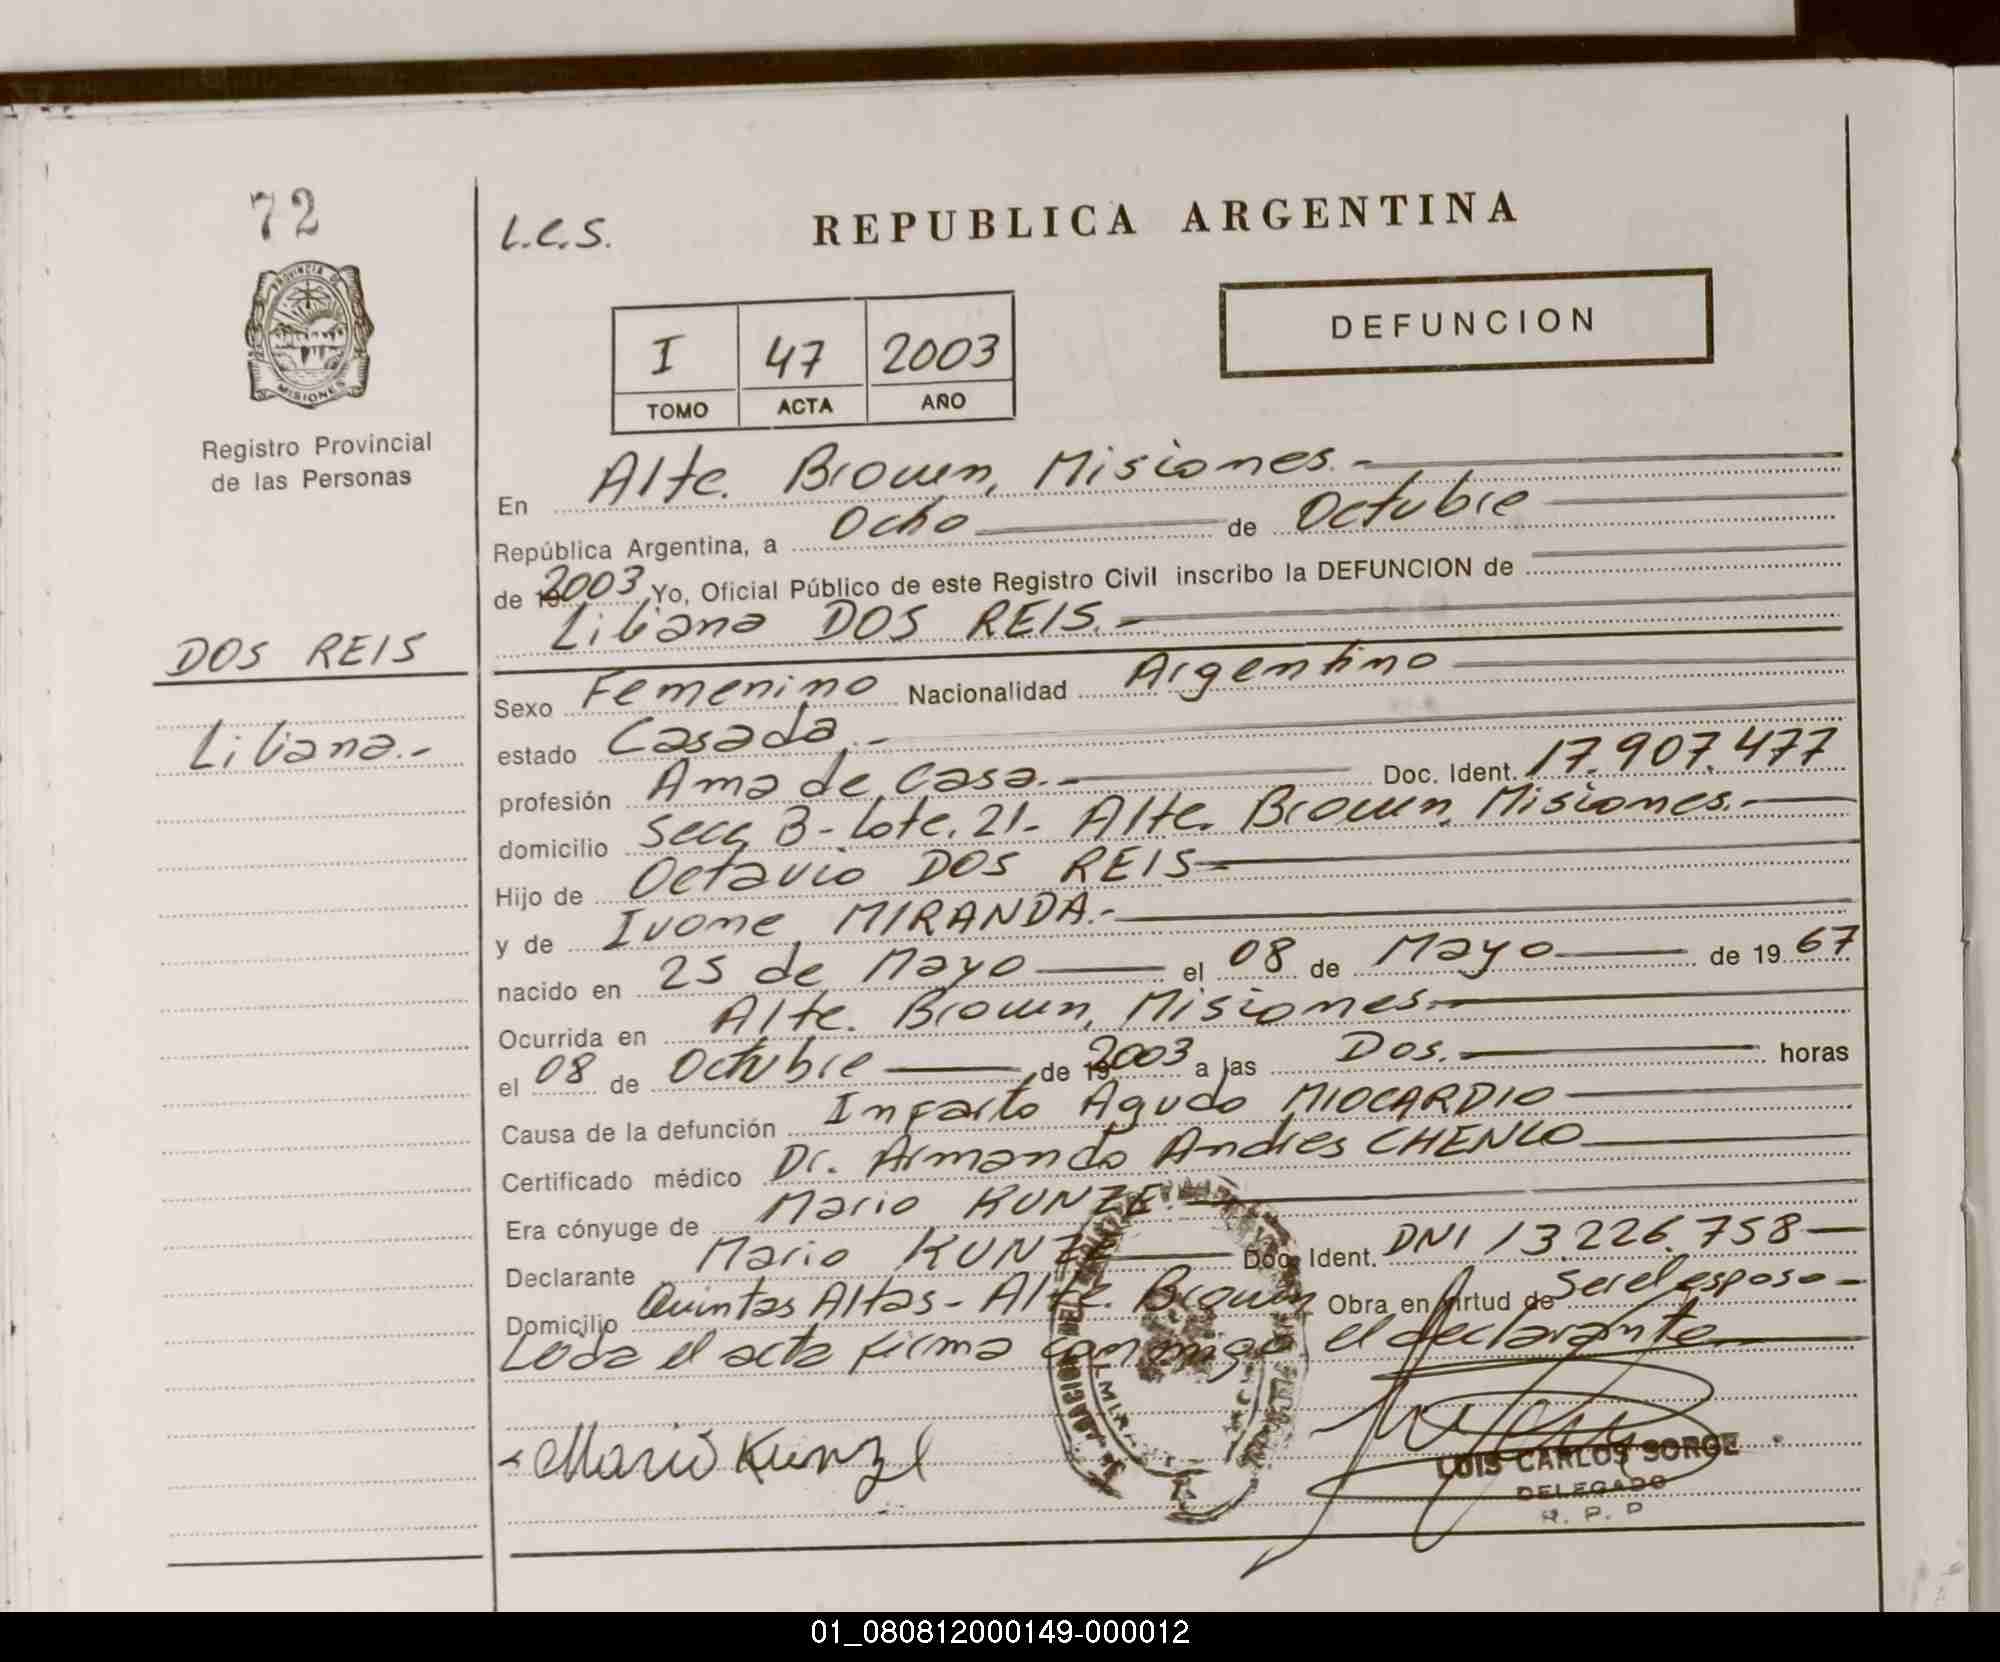 72
L.C.S.
REPUBLICA ARGENTINA
PROVINCIA DE
MISIONES
DEFUNCION
I 47 2003
TOMO ACTA AÑO
Registro Provincial
de las Personas
En Alte. Brown, Misiones.-
República Argentina, a Ocho de Octubre
de 2003 Yo, Oficial Público de este Registro Civil inscribo la DEFUNCION de
Liliana DOS REIS.-
DOS REIS
Liliana.-
Sexo Femenino Nacionalidad Argentino
estado Casada.-
profesión Ama de casa.- Doc. Ident. 17.907.477
domicilio Secc. B-Lote.21- Alte. Brown, Misiones.-
Hijo de Octavio DOS REIS-
y de Ivone MIRANDA.-
nacido en 25 de Mayo el 08 de Mayo de 19 67
Ocurrida en Alte. Brown, Misiones.-
el 08 de Octubre de 2003 a las Dos.- horas
Causa de la defunción Infarto Agudo MIOCARDIO
Certificado médico Dr. Armando Andres CHENLO
Era cónyuge de Mario KUNZE.-
Declarante Mario KUNZE Doc. Ident. DNI 13.226.758-
Domicilio Quintas Altas- Alte. Brown Obra en virtud de Ser el esposo-
Leida el acta firma conmigo el declarante
Mario Kunze
LUIS CARLOS SORGE
DELEGADO
R. P. P
01_080812000149-000012